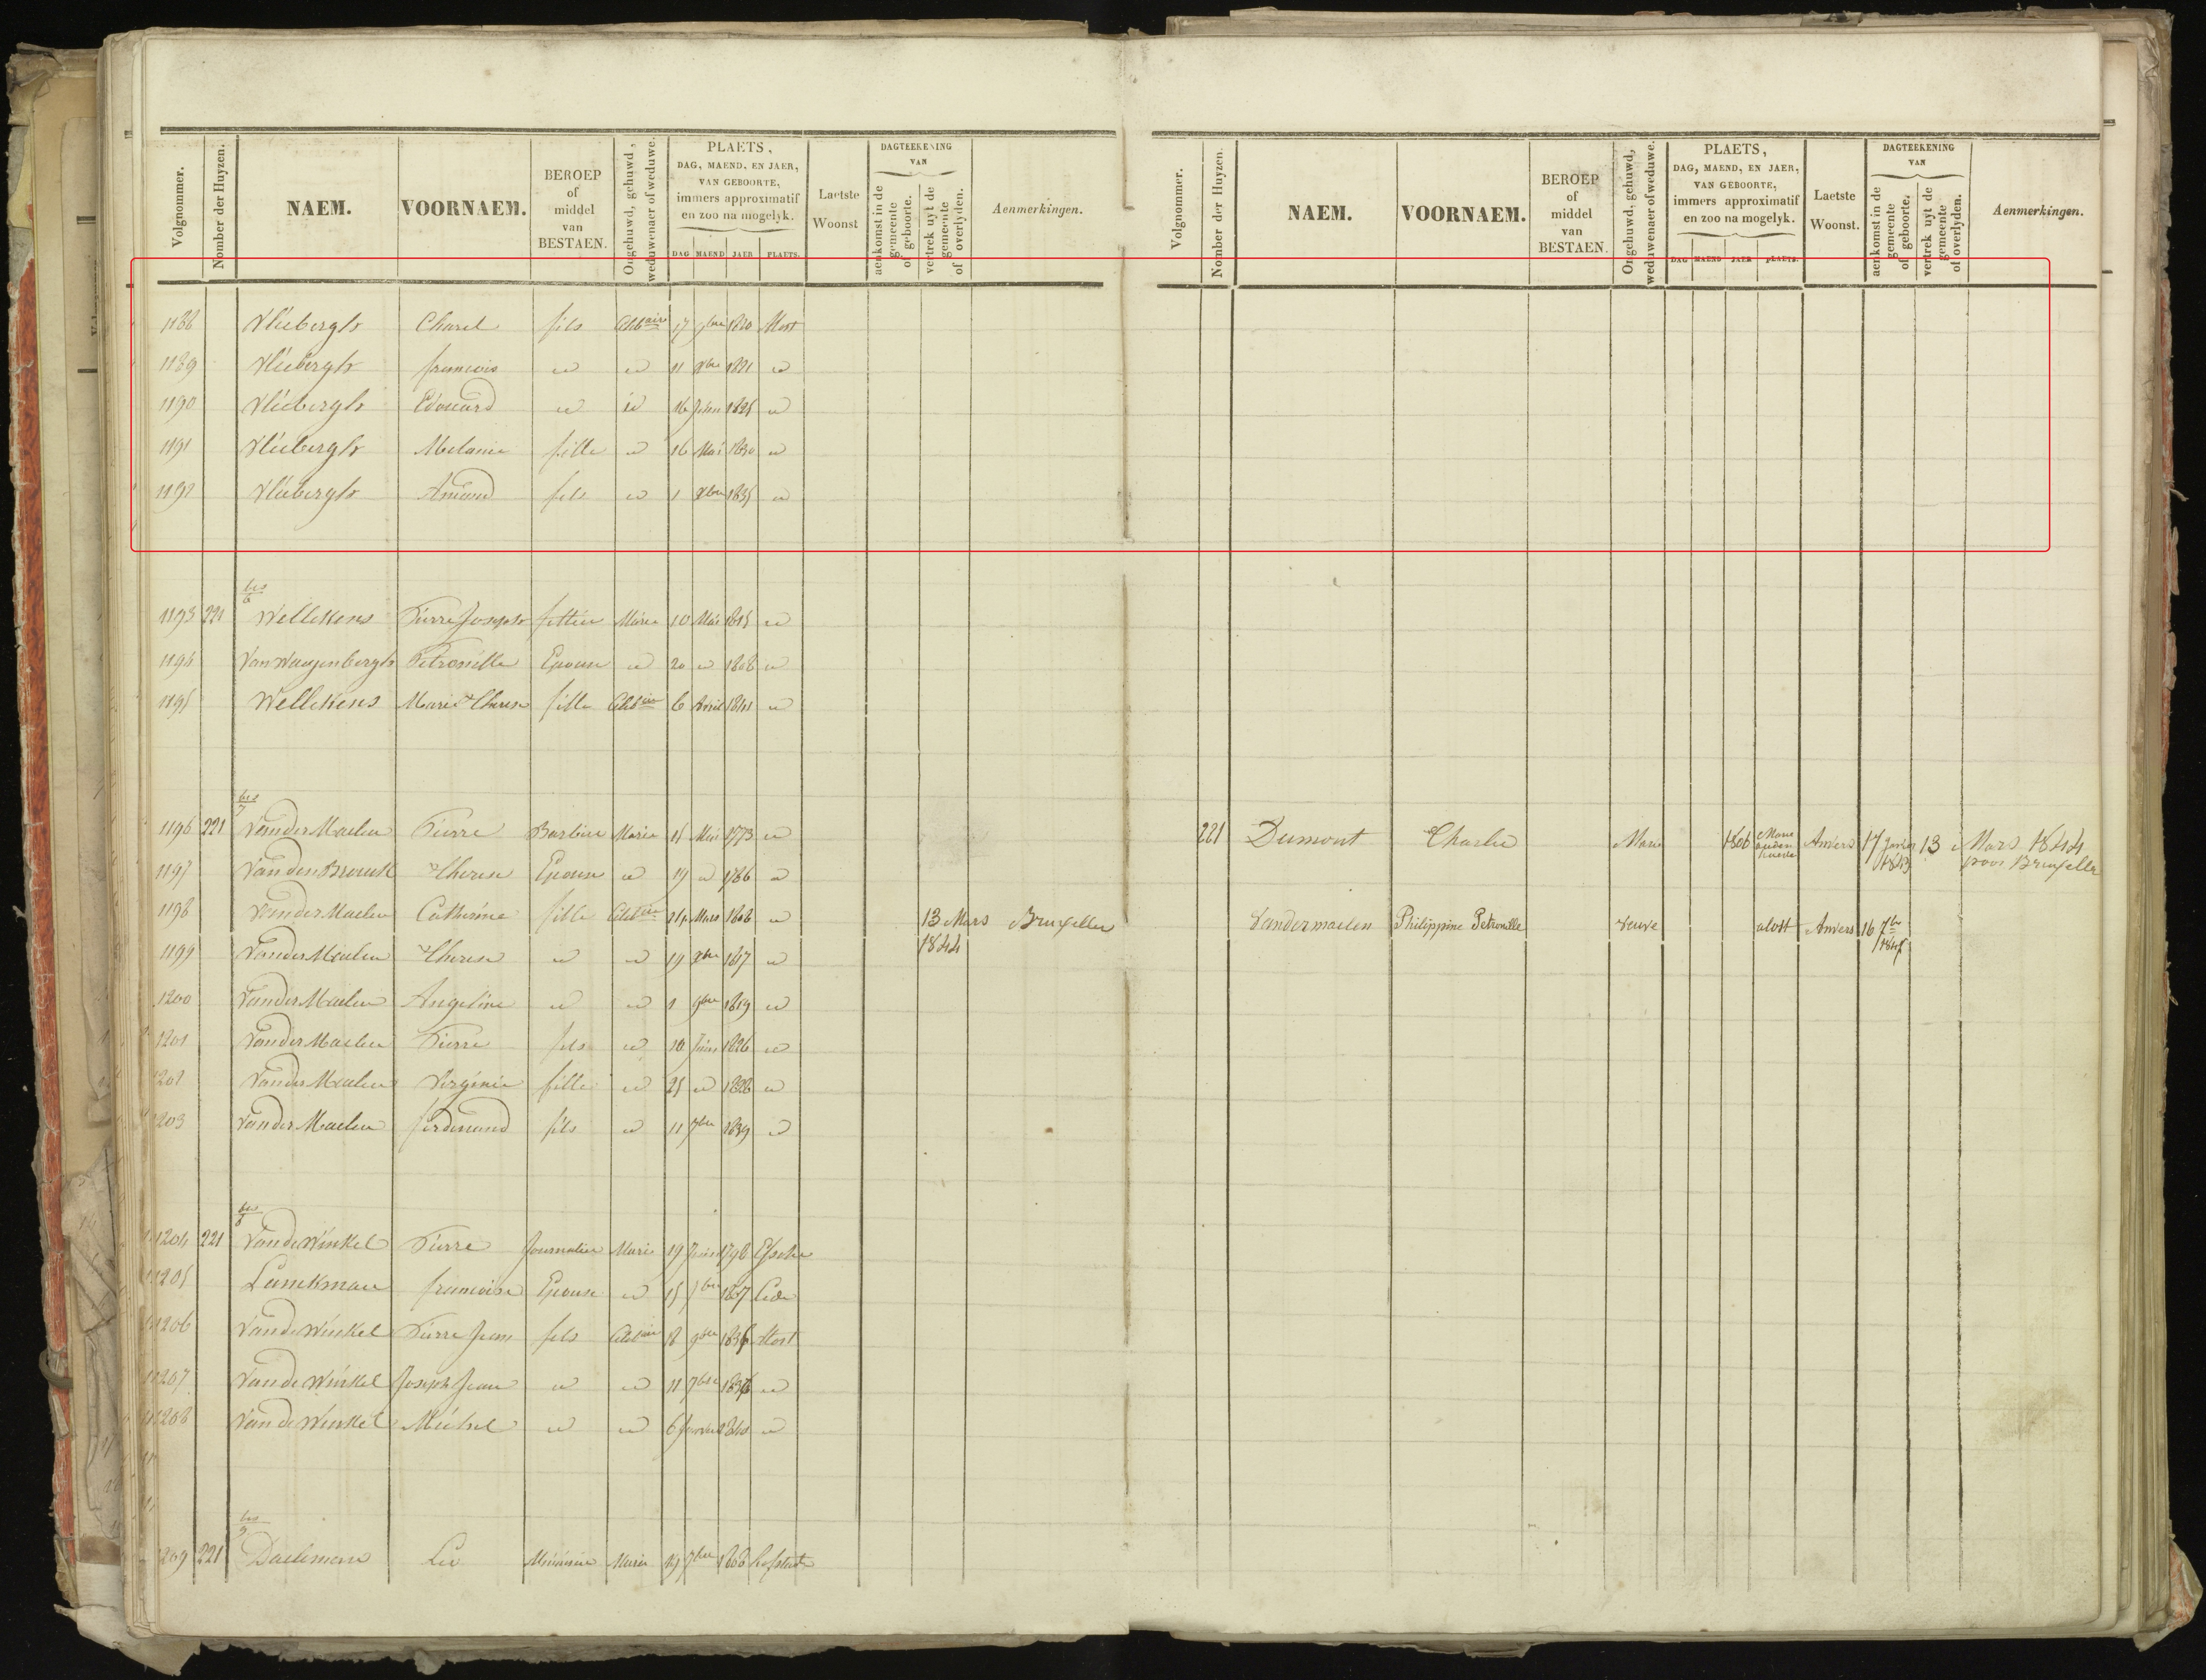 Volgnommer. Nomber der Huyzen. NAEM. VOORNAEM. BEROEP of middel van BESTAEN. Ongehuwd, gehuwd, weduwenaer of weduwe. PLAETS, DAG, MAEND, EN JAER, VAN GEBOORTE, immers approximatif en zoo na mogelyk. DAG MAEND JAER PLAETS. Laetste Woonst DAGTEEKENING VAN aenkomst in de gemeente of geboorte. vertrek uyt de gemeente of overlyden. Aenmerkingen.
1188 Vlieberghs Charel fils Celibaire 17 9bre 1820 Alost
1189 Vlieberghs francois id id 11 Xbre 1821 id
1190 Vlieberghs Edouard id id 16 Juin 1825 id
1191 Vlieberghs Melanie fille id 16 Mai 1830 id
1192 Vlieberghs Amand fils id 1 Xbre 1835 id
bis 6
1193 221 Wellekens Pierre Joseph Marié 10 Mai 1815 id
1194 Van Waeyenbergh Petronille Epouse id 20 id 1808 id
1195 Wellekens Marie Therese fille Celibaire 6 Avril 1841 id
bis 7
1196 221 Vander Maelen Pierre Barbier Marié 15 Mai 1773 id
1197 Vanden Brouck Therese Epouse id 19 id 1786 id
1198 Vander Maelen Catherine fille Celibaire Mars 1808 id 13 Mars 1844 Bruxelles
1199 Vander Maelen Therese id id 19 Xbre 1817 id
1200 Vander Maelen Angeline id id 1 9bre 1819 id
1201 Vander Maelen Pierre fils id 10 Juin 1826 id
1202 Vander Maelen Virginie fille id 25 id 1828 id
1203 Vander Maelen ferdinand fils id 11 7bre 1839 id
bis 8
1204 221 Vande Winkel Pierre Journalier Marié 19 Juin 1798
1205 Lanckman francoise Epouse id 15 1807 Lede
1206 Vande Winkel Pierre Jean fils Celibaire 18 9bre 1836 Alost
1207 Vande Winkel Joseph Jean id id 11 7bre id
1208 Vande Winkel Michel id id 6 Janvier 1840 id
bis 9
1209 221 Daelman Leo Menuisier Marié 19 7bre 1808 hofstade
Volgnommer. Nomber der Huyzen. NAEM. VOORNAEM. BEROEP of middel van BESTAEN. Ongehuwd, gehuwd, weduwenaer of weduwe. PLAETS, DAG, MAEND, EN JAER, VAN GEBOORTE, immers approximatif en zoo na mogelyk. DAG MAEND JAER PLAETS. Laetste Woonst. DAGTEEKENING VAN aenkomst in de gemeente of geboorte. vertrek uyt de gemeente of overlyden. Aenmerkingen.
221 Dumont Charles Marié 1806 Anvers 17 Janvier 1843 13 Mars 1844 pour Bruxelles
Vandermaelen Philippine Petronille veuve alost Anvers 16 7bre